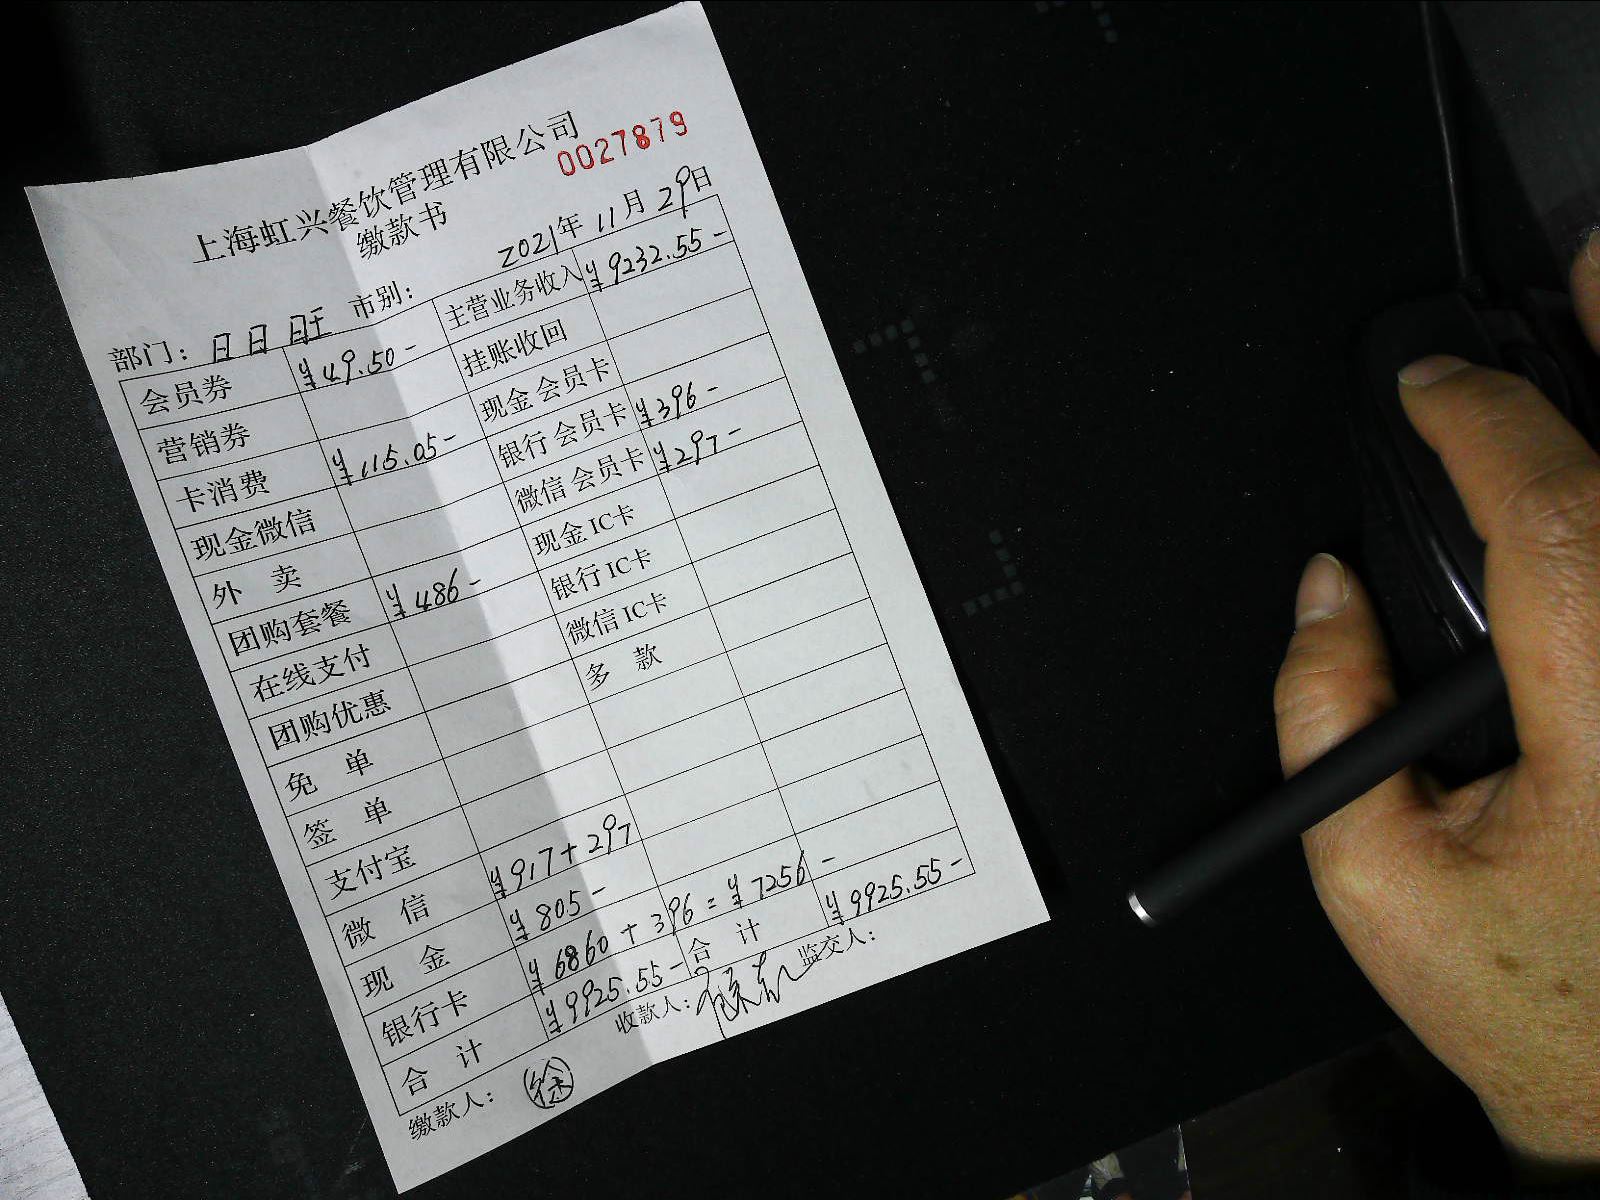 上海虹兴餐饮管理有限公司
缴款书
0027879
2021年 11月 29日
部门: 日日旺 市别:
会员券 ¥49.50- 主营业务收入 ¥9232.55-
营销券 挂账收回
卡消费 ¥115.05- 现金会员卡
现金微信 银行会员卡 ¥396-
外 卖 微信会员卡 ¥297-
团购套餐 ¥486- 现金IC卡
在线支付 银行IC卡
团购优惠 微信IC卡
免 单 多 款
签 单
支付宝
微 信 ¥917+297
现 金 ¥805-
银行卡 ¥6860+396=¥7256-
合 计 ¥9925.55- 合 计 ¥9925.55-
缴款人: 徐 收款人: 监交人: